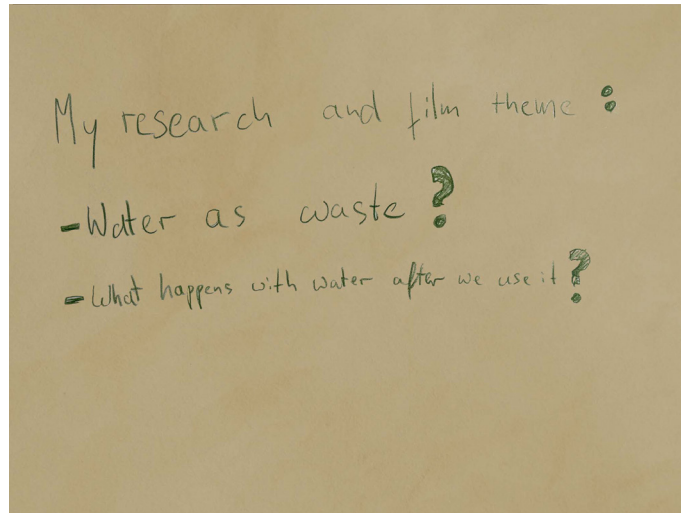 My research and film theme:
-Water as waste?
-What happens with water after we use it?